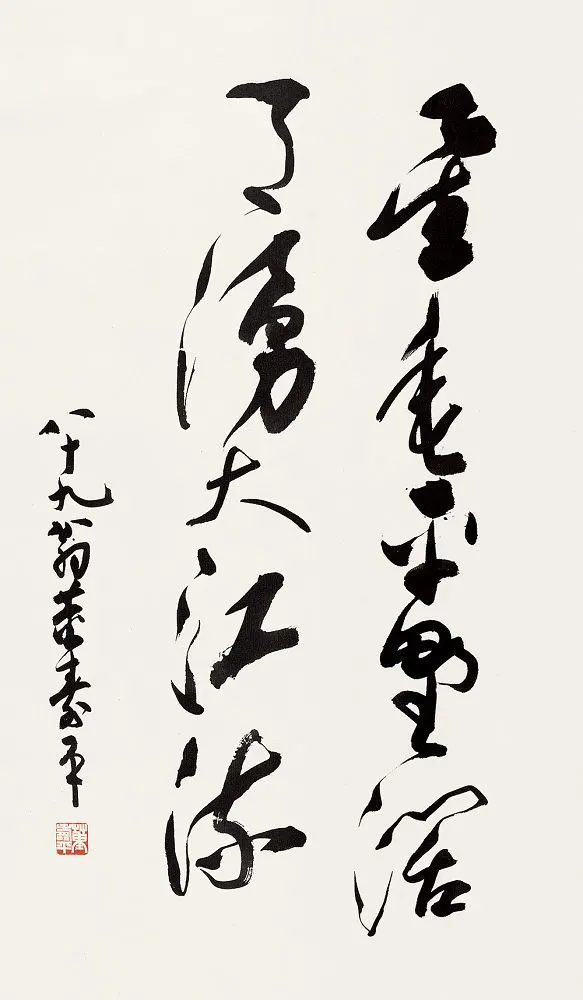 星垂平野濶
月湧大江流
八十九翁董壽平